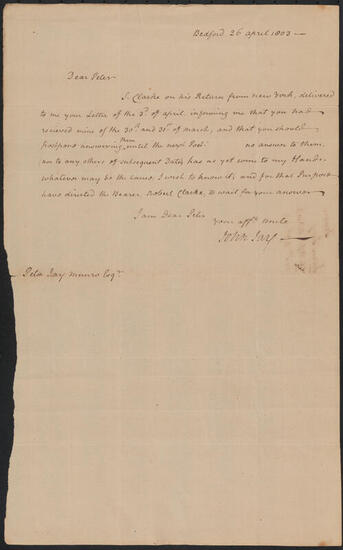 Bedford 26 April 1803 —
Dear Peter
S. Clarke on his Return from New York, delivered
to me your Letter of the 3d. of April informing me that you had
recieved mine of the 30th. and 31st. of March, and that you should
postpone answering them until the next Post. no answer to them,
nor to any others of subsequent Dates has as yet come to my Hands.
whatever may be the cause, I wish to know it; and for that Purpose
have directed the Bearer, Robert Clarke, to wait for your answer
I am Dear Peter
your affte. uncle
John Jay —
Peter Jay Munro Esqr.